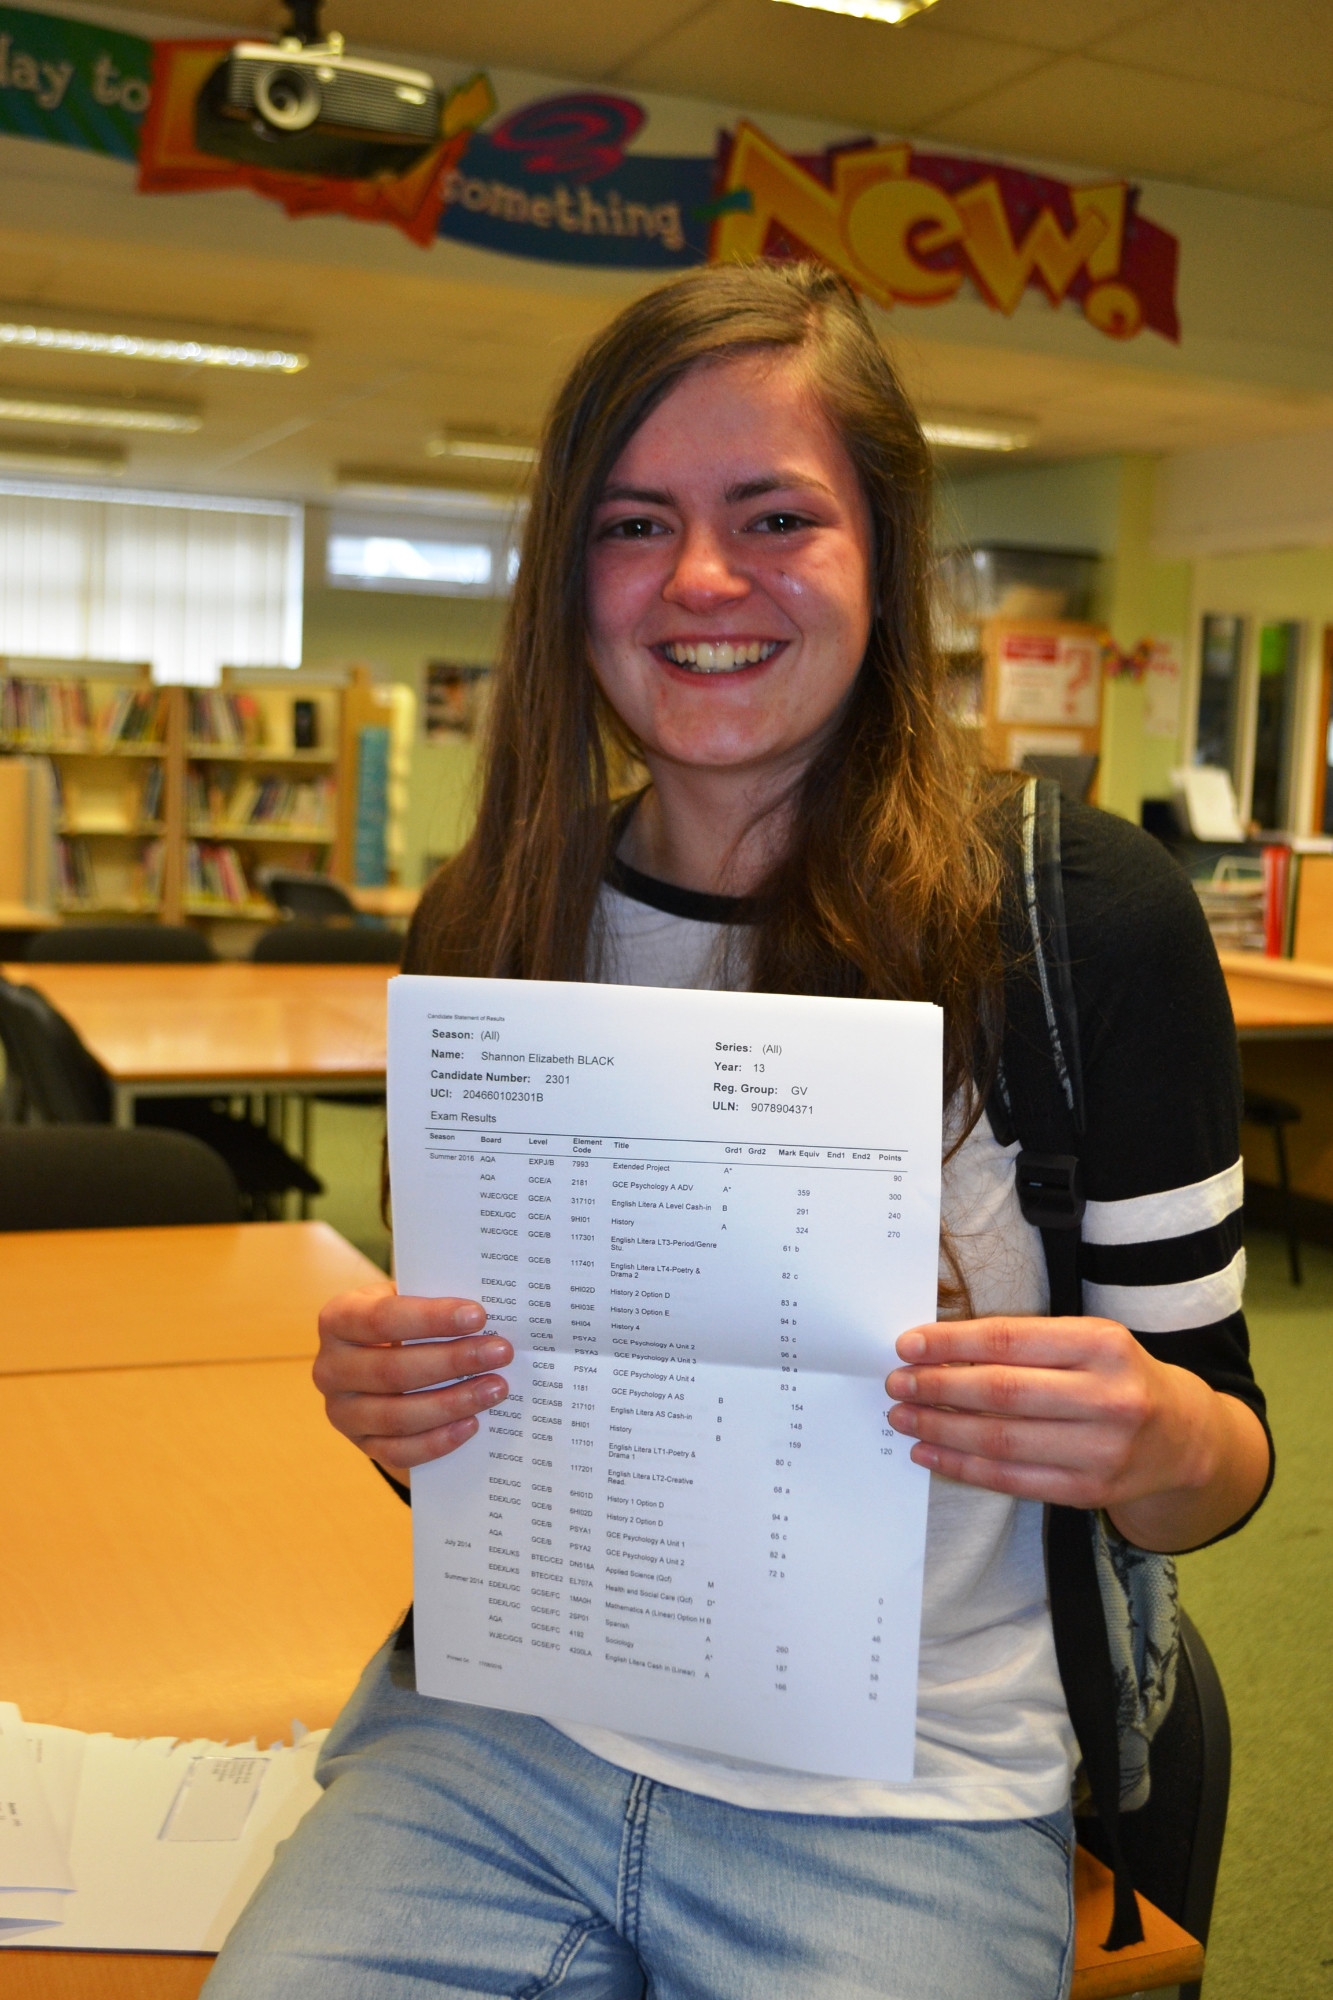 day to
something
New!
Candidate Statement of Results
Season: (All)
Series: (All)
Name: Shannon Elizabeth BLACK
Year: 13
Candidate Number: 2301
Reg. Group: GV
UCI: 204660102301B
ULN: 9078904371
Exam Results
Season Board Level Element Code Title Grd1 Grd2 Mark Equiv End1 End2 Points
Summer 2016 AQA EXPJ/B 7993 Extended Project A* 90
AQA GCE/A 2181 GCE Psychology A ADV A* 359 300
WJEC/GCE GCE/A 317101 English Litera A Level Cash-in B 291 240
EDEXL/GC GCE/A 9HI01 History A 324 270
WJEC/GCE GCE/B 117301 English Litera LT3-Period/Genre Stu. 61 b
WJEC/GCE GCE/B 117401 English Litera LT4-Poetry & Drama 2 82 c
EDEXL/GC GCE/B 6HI02D History 2 Option D 83 a
EDEXL/GC GCE/B 6HI03E History 3 Option E 94 b
EDEXL/GC GCE/B 6HI04 History 4 53 c
AQA GCE/B PSYA2 GCE Psychology A Unit 2 96 a
GCE/B PSYA3 GCE Psychology A Unit 3 98 a
GCE/B PSYA4 GCE Psychology A Unit 4 83 a
GCE/ASB 1181 GCE Psychology A AS B 154
GCE GCE/ASB 217101 English Litera AS Cash-in B 148 120
EDEXL/GC GCE/ASB 8HI01 History B 159 120
WJEC/GCE GCE/B 117101 English Litera LT1-Poetry & Drama 1 80 c
WJEC/GCE GCE/B 117201 English Litera LT2-Creative Read. 68 a
EDEXL/GC GCE/B 6HI01D History 1 Option D 94 a
EDEXL/GC GCE/B 6HI02D History 2 Option D 65 c
AQA GCE/B PSYA1 GCE Psychology A Unit 1 82 a
AQA GCE/B PSYA2 GCE Psychology A Unit 2 72 b
July 2014 EDEXL/KS BTEC/CE2 DN518A Applied Science (Qcf) M 0
EDEXL/KS BTEC/CE2 EL707A Health and Social Care (Qcf) D* 0
Summer 2014 EDEXL/GC GCSE/FC 1MA0H Mathematics A (Linear) Option H B 46
EDEXL/GC GCSE/FC 2SP01 Spanish A 260 52
AQA GCSE/FC 4192 Sociology A* 187 58
WJEC/GCS GCSE/FC 4200LA English Litera Cash in (Linear) A 166 52
Printed On